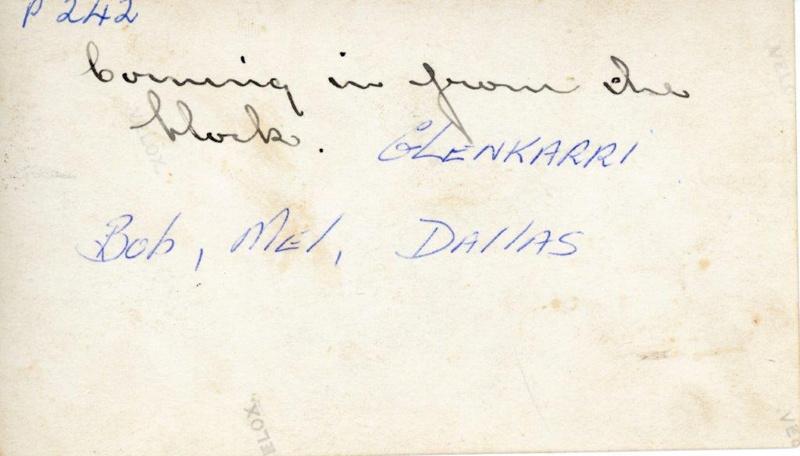 P 242
Coming in from the
block. GLENKARRI
Bob, Mel, DALLAS
VELOX
VELOX
VELOX
VELOX